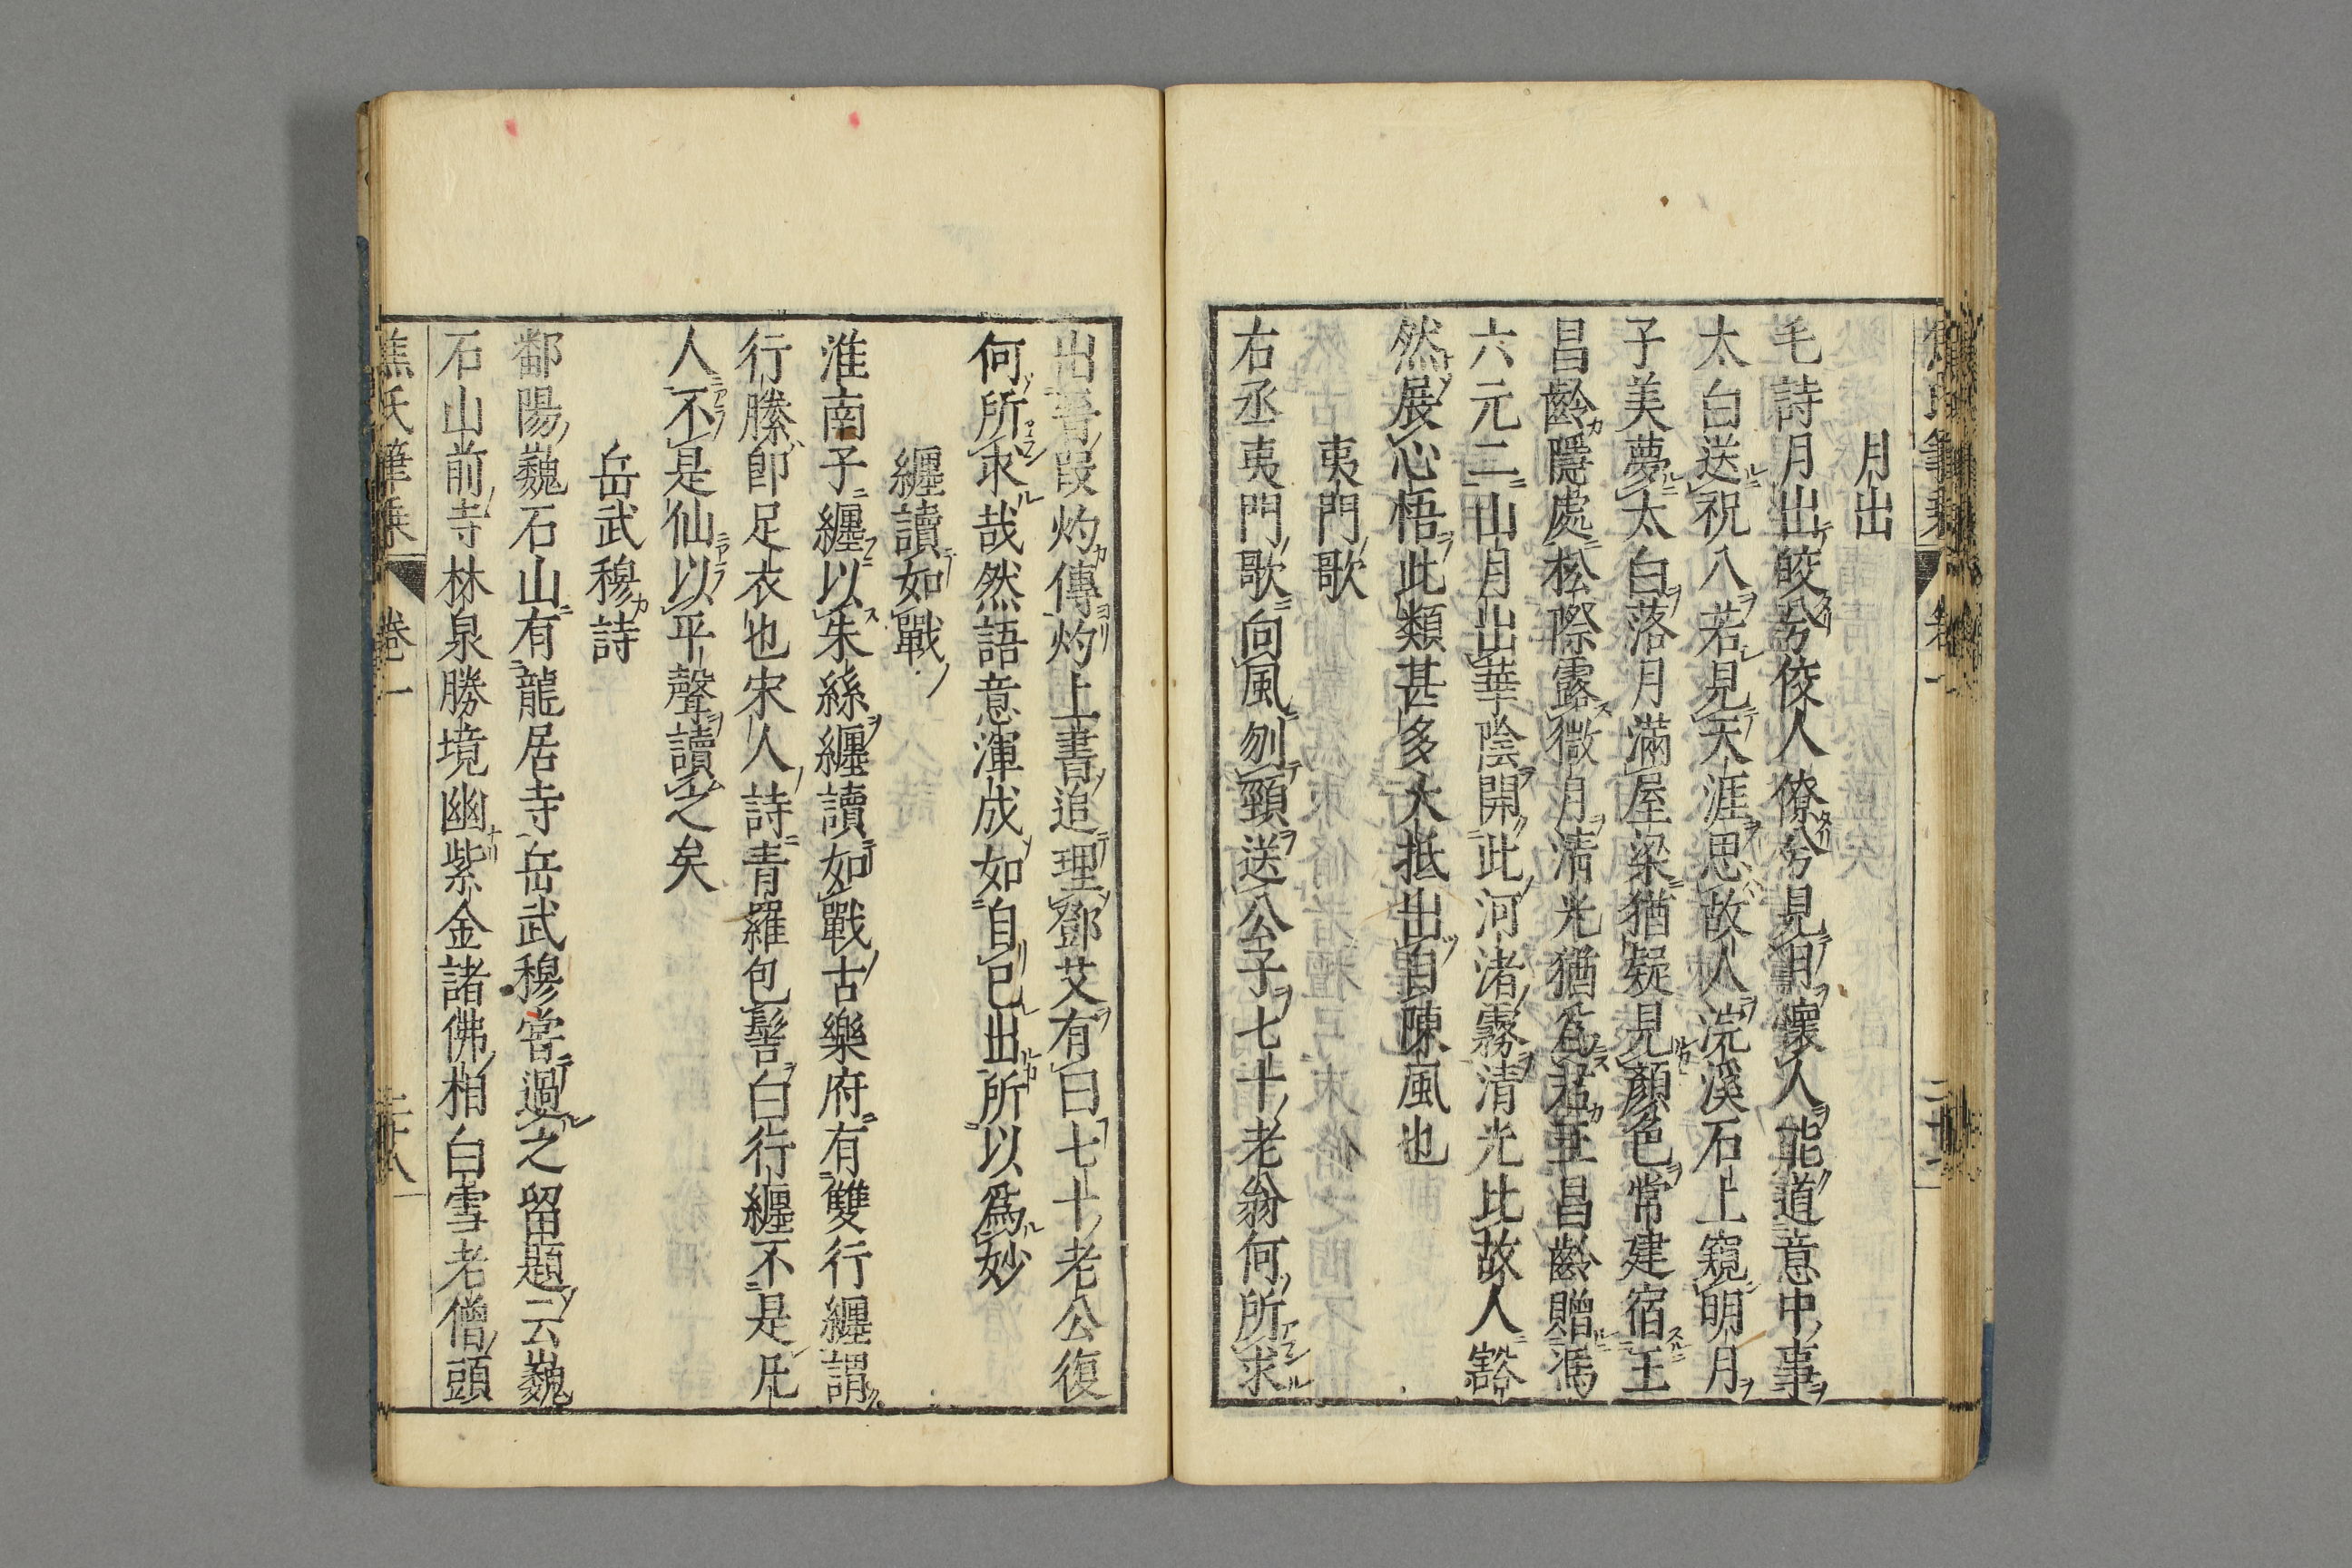 月出
毛詩月出皎兮佼人僚兮見月懷人能道意中事
太白送祝八若見天涯思故人浣溪石上窺明月
子美夢太白落月滿屋梁猶疑見顏色常建宿王
昌齡隱處松際露微月清光猶爲君王昌齡贈馮
六元二山月出華陰開此河渚霧清光比故人豁
然展心悟此類甚多大抵出自陳風也
夷門歌
右丞夷門歌向風刎頸送公子七十老翁何所求
出晉段灼傳灼上書追理鄧艾有曰七十老公復
何所求哉然語意渾成如自己出所以爲妙
纏讀如戰
淮南子纏以朱絲纏讀如戰古樂府有雙行纏謂
行縢卽足衣也宋人詩青羅包髻白行纏不是凡
人不是仙以平聲讀之矣
岳武穆詩
鄱陽巍石山有龍居寺岳武穆嘗過之留題云巍
石山前寺林泉勝境幽紫金諸佛相白雪老僧頭
焦氏筆乘 卷一 二十八